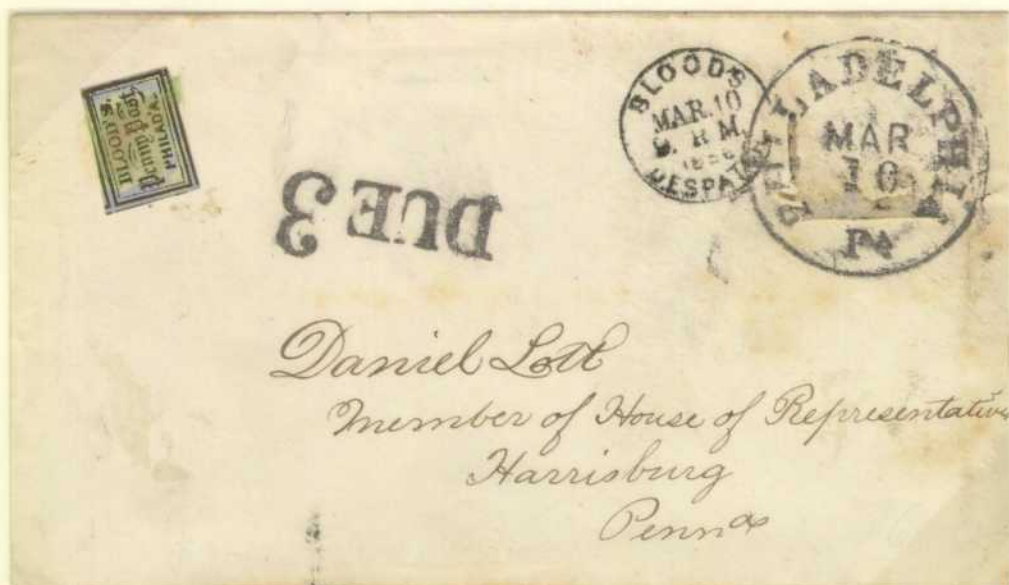 BLOOD'S
Penny Post
PHILAD'A.
DUE 3
BLOOD'S
MAR. 10
DESPATCH
PHILADELPHIA
MAR
10
PA
Daniel Lott
Member of House of Representatives
Harrisburg
Penna